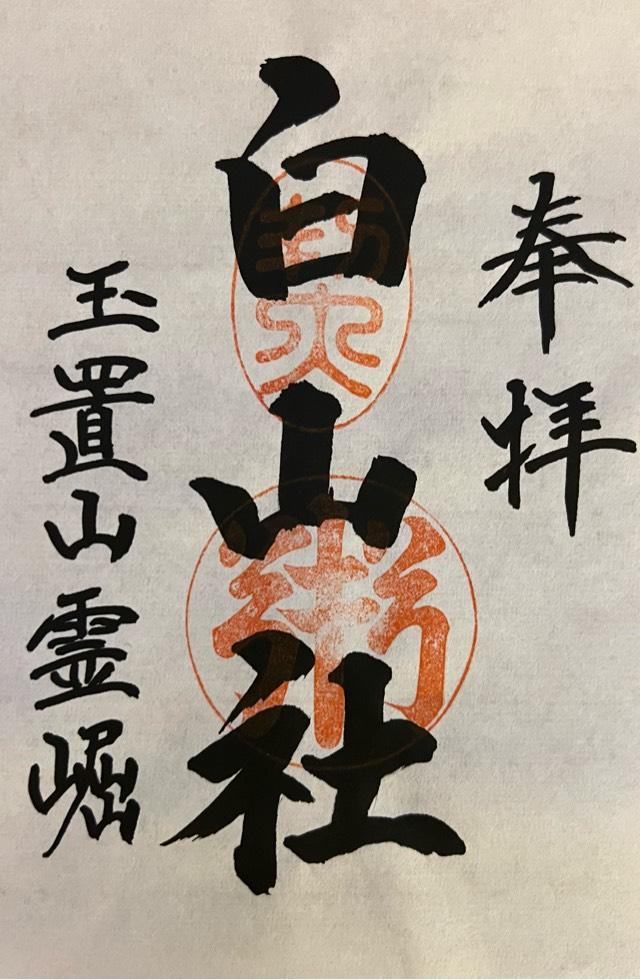 奉拝
白山社
玉置山霊崛